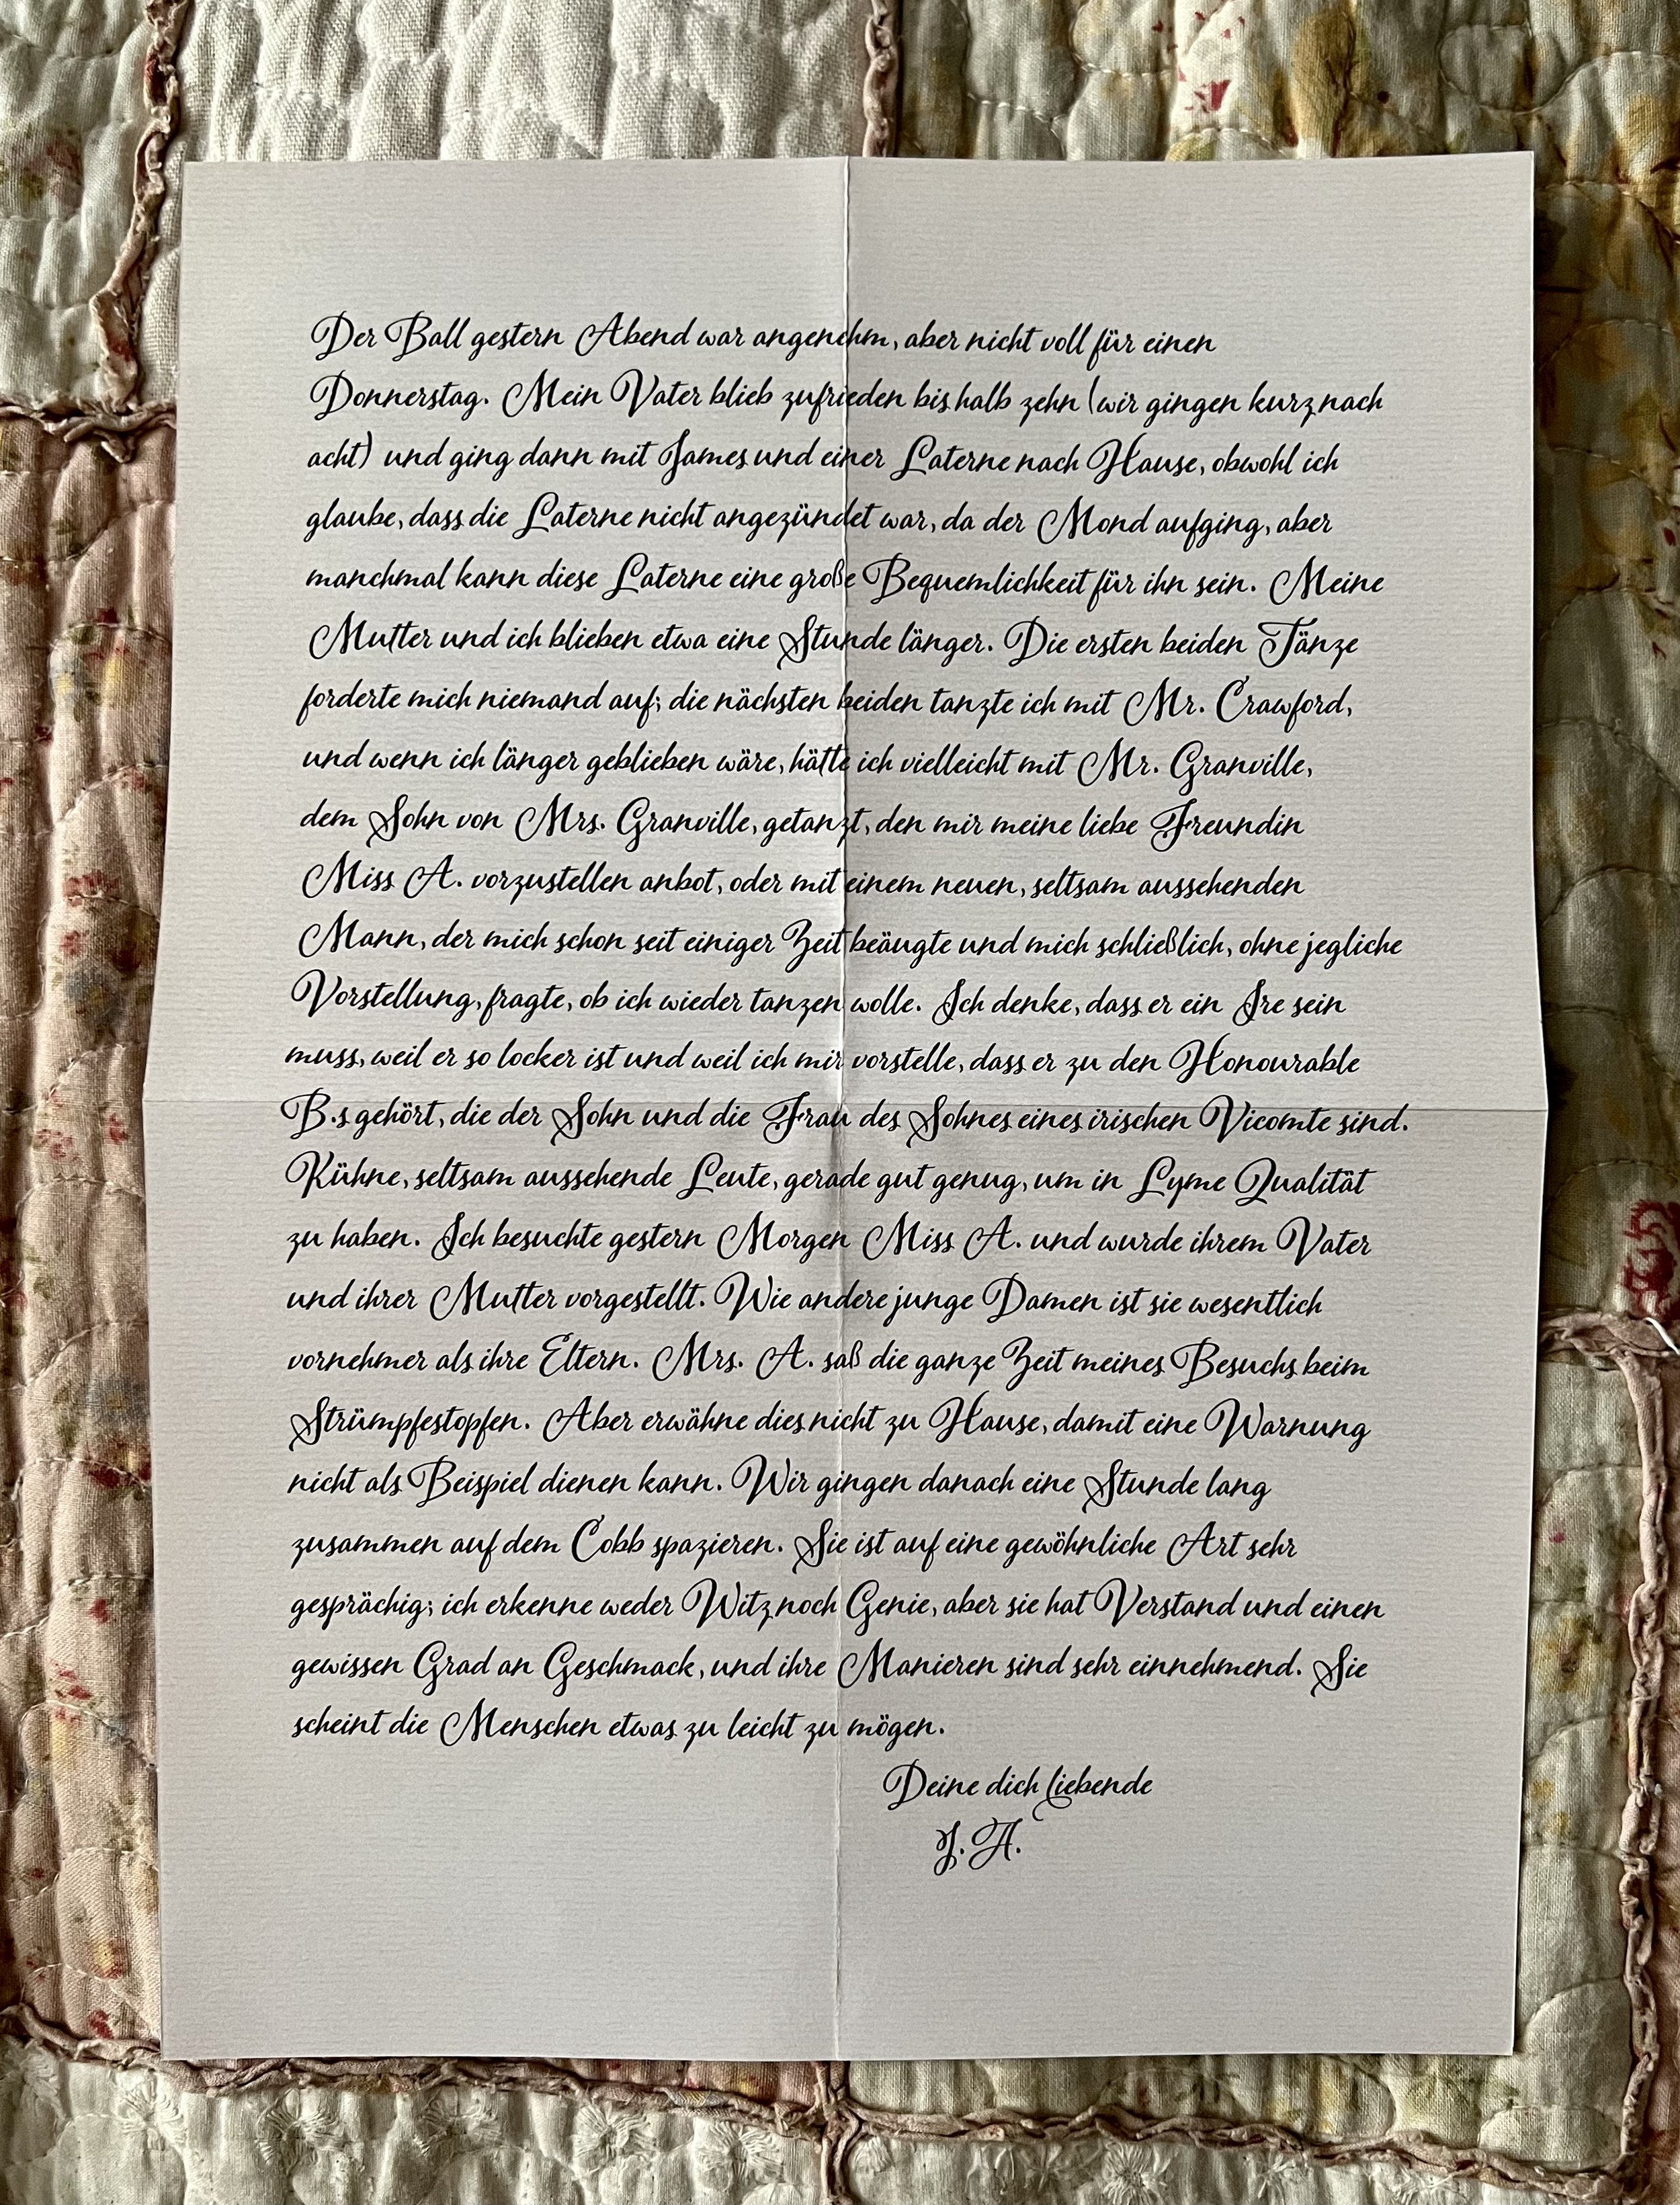 Der Ball gestern Abend war angenehm, aber nicht voll für einen
Donnerstag. Mein Vater blieb zufrieden bis halb zehn (wir gingen kurz nach
acht) und ging dann mit James und einer Laterne nach Hause, obwohl ich
glaube, dass die Laterne nicht angezündet war, da der Mond aufging, aber
manchmal kann diese Laterne eine große Bequemlichkeit für ihn sein. Meine
Mutter und ich blieben etwa eine Stunde länger. Die ersten beiden Tänze
forderte mich niemand auf; die nächsten beiden tanzte ich mit Mr. Crawford,
und wenn ich länger geblieben wäre, hätte ich vielleicht mit Mr. Granville,
dem Sohn von Mrs. Granville, getanzt, den mir meine liebe Freundin
Miss A. vorzustellen anbot, oder mit einem neuen, seltsam aussehenden
Mann, der mich schon seit einiger Zeit beäugte und mich schließlich, ohne jegliche
Vorstellung, fragte, ob ich wieder tanzen wolle. Ich denke, dass er ein Ire sein
muss, weil er so locker ist und weil ich mir vorstelle, dass er zu den Honourable
B.s gehört, die der Sohn und die Frau des Sohnes eines irischen Vicomte sind.
Kühne, seltsam aussehende Leute, gerade gut genug, um in Lyme Qualität
zu haben. Ich besuchte gestern Morgen Miss A. und wurde ihrem Vater
und ihrer Mutter vorgestellt. Wie andere junge Damen ist sie wesentlich
vornehmer als ihre Eltern. Mrs. A. saß die ganze Zeit meines Besuchs beim
Strümpfestopfen. Aber erwähne dies nicht zu Hause, damit eine Warnung
nicht als Beispiel dienen kann. Wir gingen danach eine Stunde lang
zusammen auf dem Cobb spazieren. Sie ist auf eine gewöhnliche Art sehr
gesprächig; ich erkenne weder Witz noch Genie, aber sie hat Verstand und einen
gewissen Grad an Geschmack, und ihre Manieren sind sehr einnehmend. Sie
scheint die Menschen etwas zu leicht zu mögen.
Deine dich liebende
J. A.